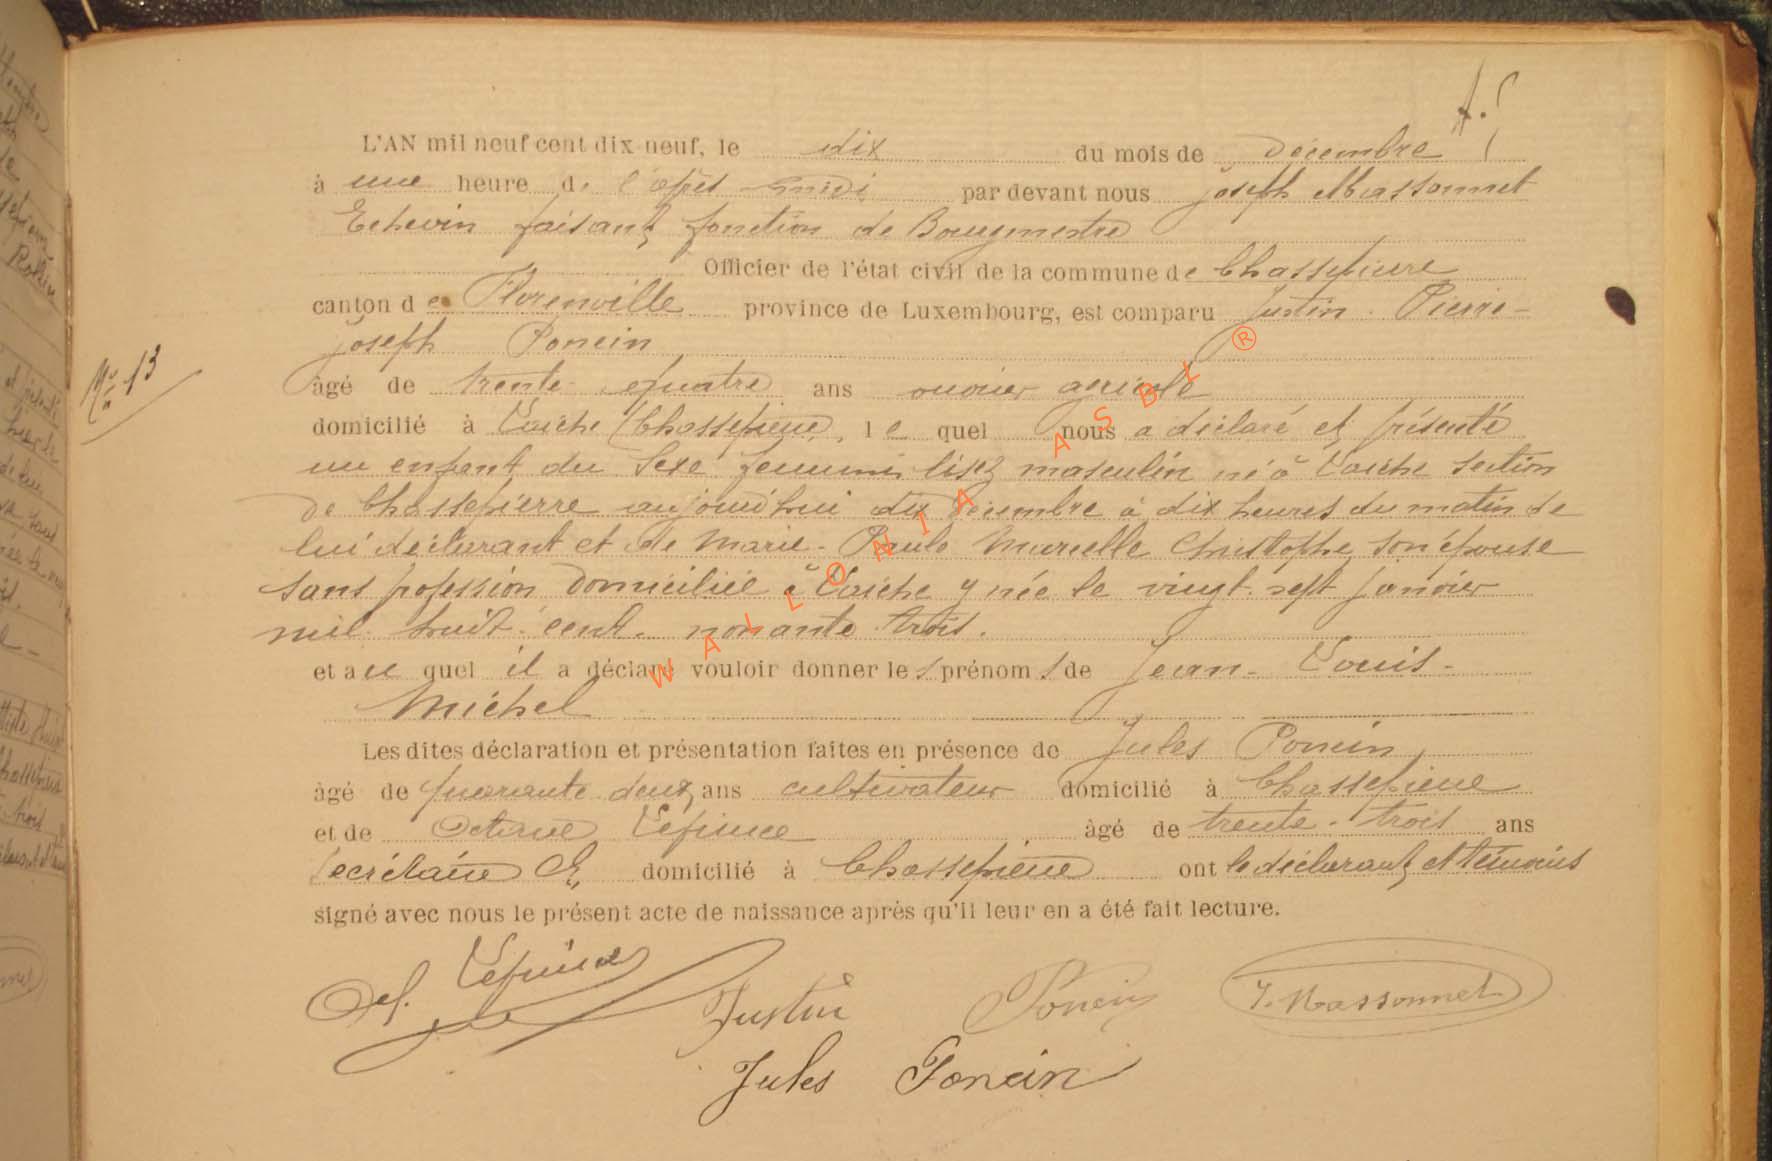 A.
L'AN mil neuf cent dix-neuf, le dix du mois de Décembre
à une heure de l'après midi par devant nous Joseph Massonnet
Echevin faisant fonction de Bourgmestre
Officier de l'état civil de la commune de Chassepierre
canton de Florenville province de Luxembourg, est comparu Justin-Pierre-
Joseph Poncin
No 13
âgé de trente-quatre ans ouvrier agricole
domicilié à Laiche (Chassepierre), le quel nous a déclaré et présenté
un enfant du sexe feminin lisez masculin né à Laiche section
de Chassepierre aujourd'hui dix Décembre à dix heures du matin de
lui déclarant et de Marie-Paule Marielle Christophe son épouse
sans profession domiciliée à Laiche y née le vingt-sept Janvier
mil-huit-cent-nonante-trois.
et au quel il a déclaré vouloir donner les prénoms de Jean-Louis-
Michel
Les dites déclaration et présentation faites en présence de Jules Poncin,
âgé de quarante deux ans cultivateur domicilié à Chassepierre
et de Octave Lépine âgé de trente-trois ans
Secrétaire Cl domicilié à Chassepierre ont le déclarant et témoins
signé avec nous le présent acte de naissance après qu'il leur en a été fait lecture.
Justin Poncin J. Massonnet
Jules Poncin
WALLONIA ASBL ®